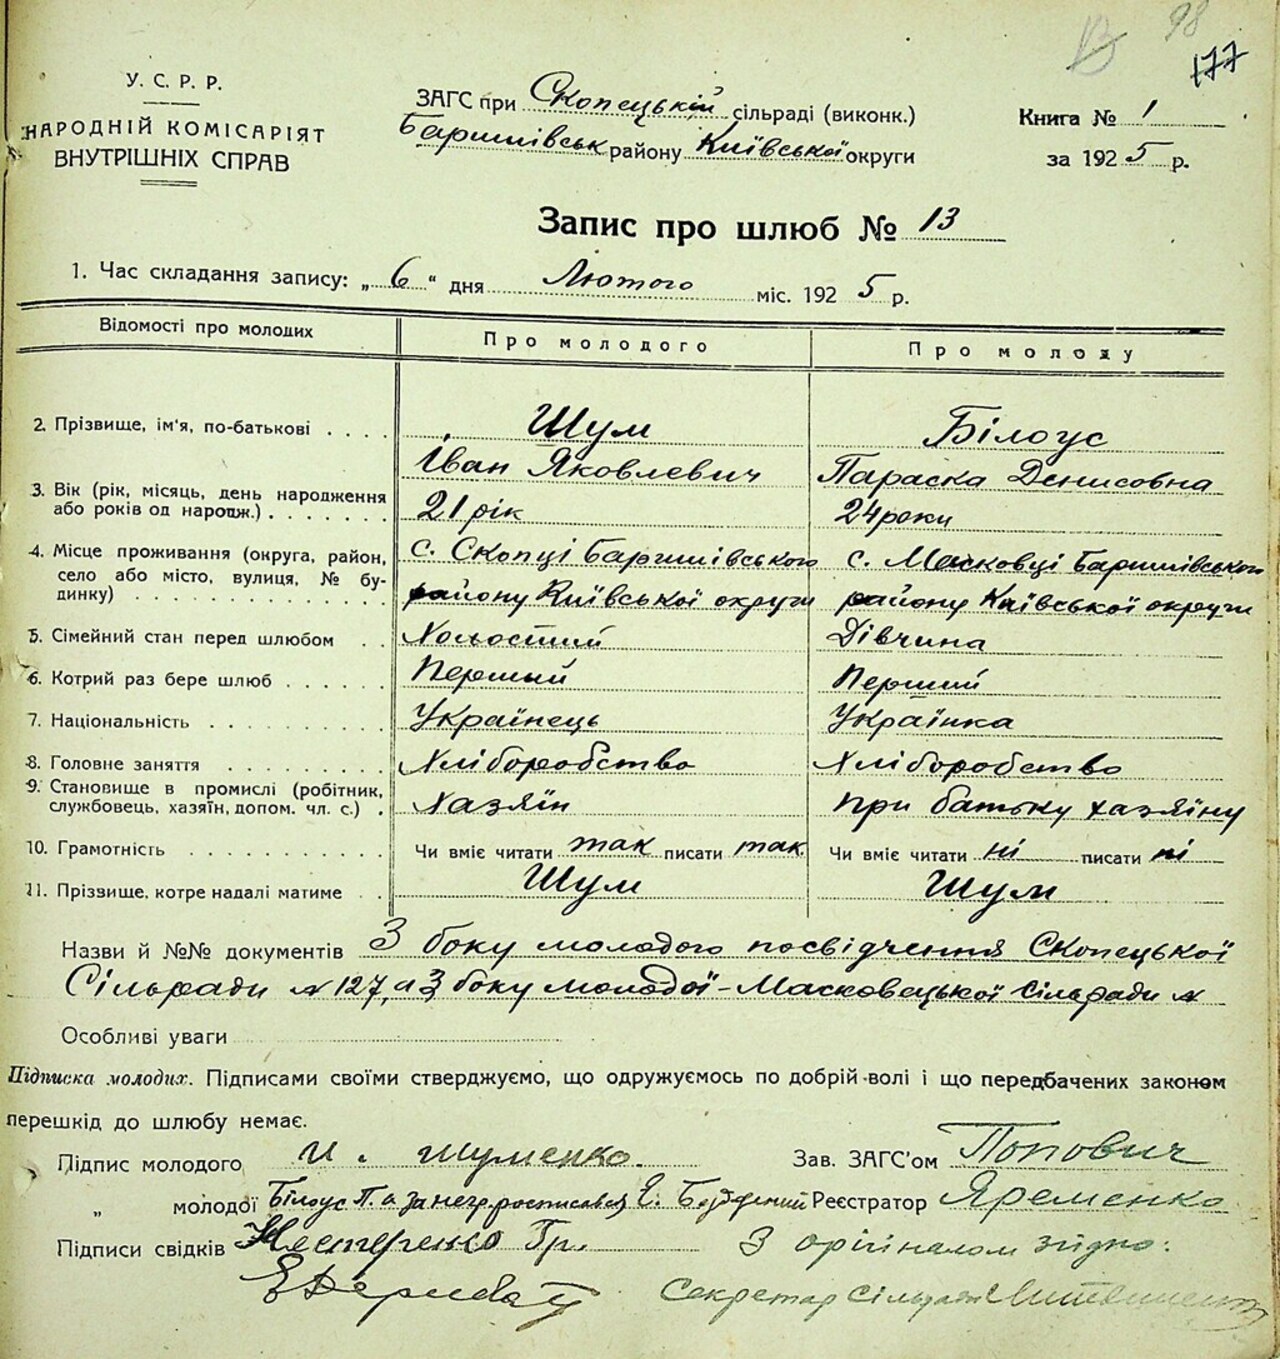 98
177
У. С. Р. Р.
НАРОДНІЙ КОМІСАРІЯТ
ВНУТРІШНІХ СПРАВ
ЗАГС при Скопецькій сільраді (виконк.)
Баришівськ району Київської округи
Книга № 1
за 1925 р.
Запис про шлюб № 13
1. Час складання запису: „6“ дня Лютого міс. 1925 р.
Відомості про молодих
Про молодого
Про молоду
2. Прізвище, ім'я, по-батькові
Шум
Іван Яковлевич
Білоус
Параска Денисовна
3. Вік (рік, місяць, день народження
або років од народж.)
21 рік
24 роки
4. Місце проживання (округа, район,
село або місто, вулиця, № бу-
динку)
с. Скопці Баришівського
району Київської округи
с. Масковці Баришівського
району Київської округи
5. Сімейний стан перед шлюбом
Холостий
Дівчина
6. Котрий раз бере шлюб
Перший
Перший
7. Національність
Українець
Українка
8. Головне заняття
Хлібороbство
Хліборобство
9. Становище в промислі (робітник,
службовець, хазяїн, допом. чл. с.)
Хазяїн
при батьку хазяїну
10. Грамотність
Чи вміє читати так писати так
Чи вміє читати ні писати ні
11. Прізвище, котре надалі матиме
Шум
Шум
Назви й №№ документів З боку молодого посвідчення Скопецької
Сільради № 127, а з боку молодої - Масковецької Сільради №
Особливі уваги
Підписка молодих. Підписами своїми стверджуємо, що одружуємось по добрій волі і що передбачених законом
перешкід до шлюбу немає.
Підпис молодого И. Шуменко.
Зав. ЗАГС'ом Попович
„ молодої Білоус П. а за негр. росписався Є.
Реєстратор Яременко
Підписи свідків Нестеренко Гр.
З орігіналом згідно:
Секретар Сільради